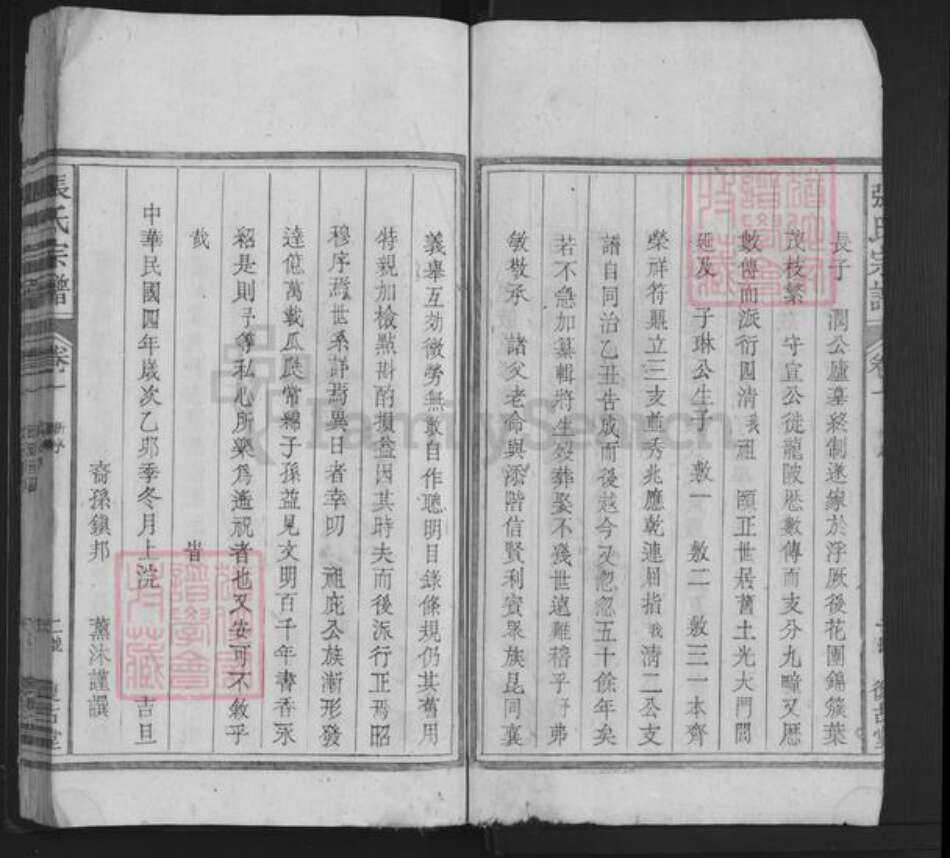 長子　潤公廬墓終制遂家於浮厥後花團錦簇葉
茂枝繁　守宜公徒龍陂歷數傳而支分九疇又歷
數傳而派衍四清　祖　頤正世居舊土光大門閭
延及　子琳公生子　敷一　敷二　敷三一本齊
榮祥符鼎立三支並秀兆應乾連屈指我清二公支
譜自同治乙丑告成而後越今又忽忽五十餘年矣
若不急加纂輯將生歿葬娶不幾世遠難稽乎　弟
敏敬承　諸父老命與添階信賢利賓眾族昆同襄
義舉互効微勞無斁自作聰明目錄條規仍其舊用
特親加檢點斟酌損益因其時夫而後派行正焉昭
穆序焉世系詳焉異日者幸叨　祖庇公族漸形發
達億萬載瓜瓞常綿子孫益見文明百千年書香永
紹是則予等私心所樂為遙祝者也又安可不敘乎
哉　　　　　　　旹
中華民國四年歲次乙卯季冬月上浣　　　吉旦
裔孫鎮邦　薰沐謹譔
張氏宗譜
卷一
新序
張氏宗譜
卷一